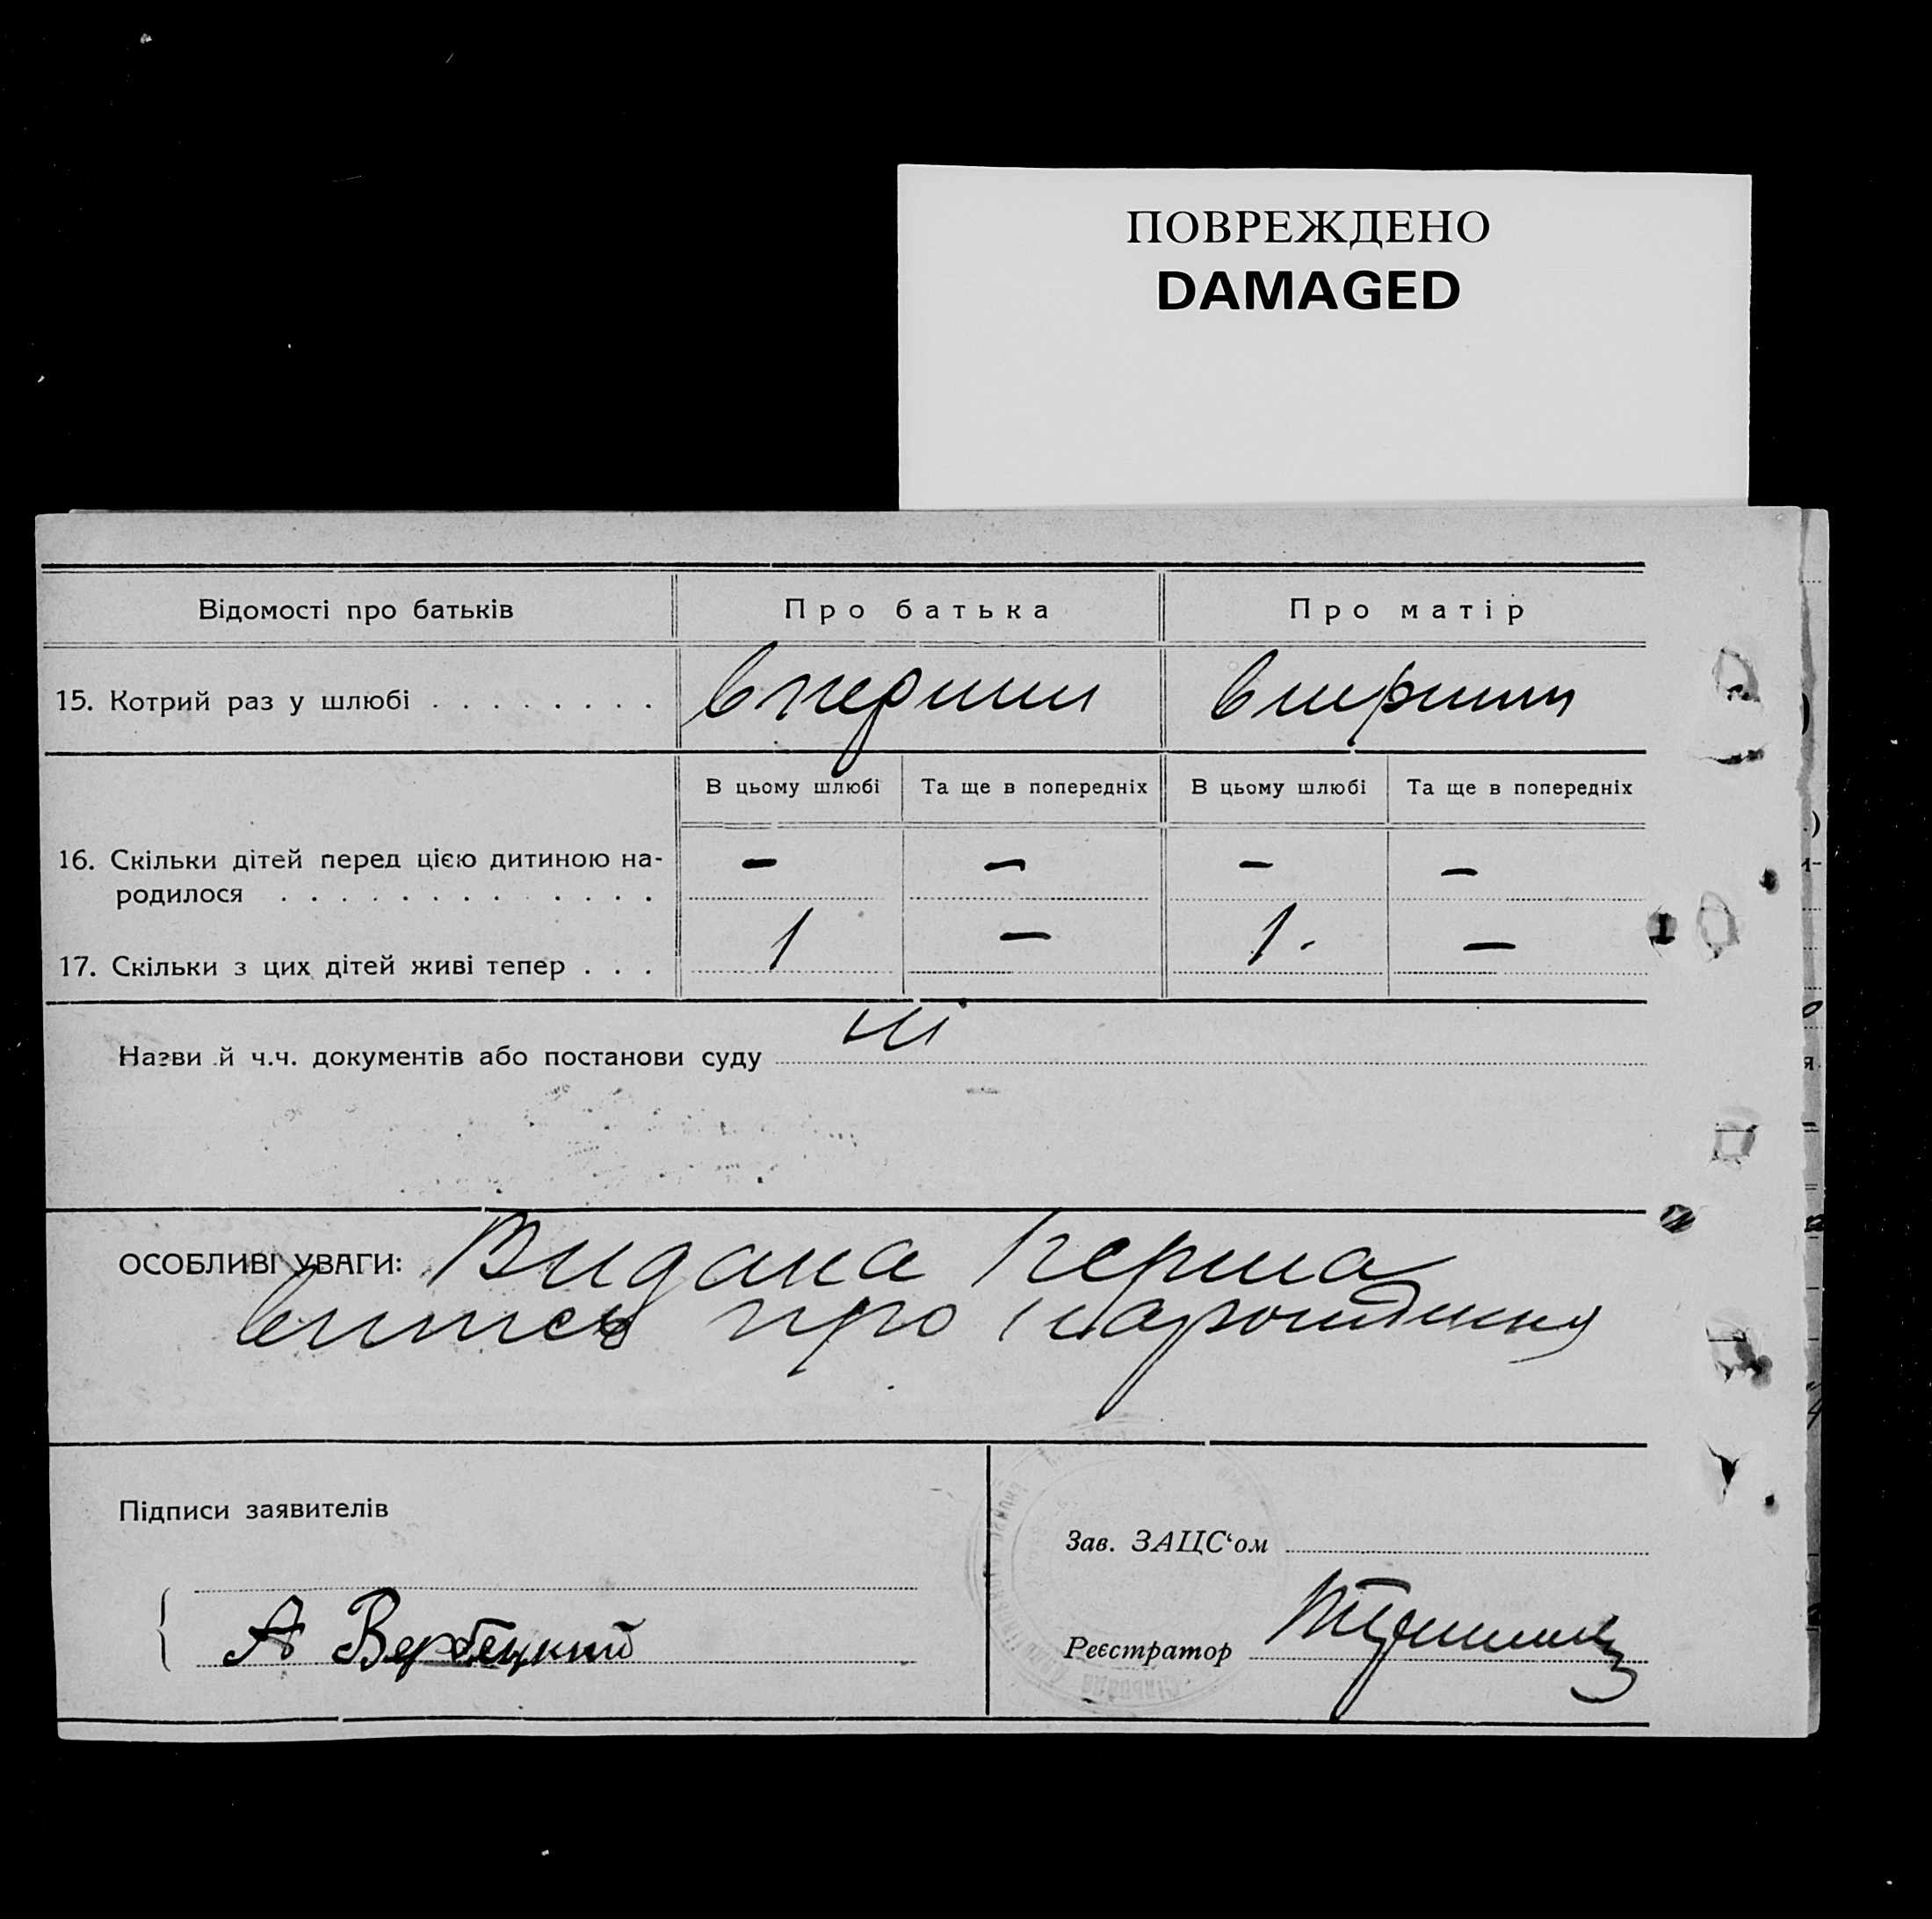 ПОВРЕЖДЕНО
DAMAGED
Відомості про батьків Про батька Про матір
15. Котрий раз у шлюбі . . . . . . . . вперши вперши
В цьому шлюбі Та ще в попередніх В цьому шлюбі Та ще в попередніх
16. Скільки дітей перед цією дитиною на- – – – –
родилося . . . . . . . . . . . . .
17. Скільки з цих дітей живі тепер . . . 1 – 1. –
Назви й ч.ч. документів або постанови суду
ОСОБЛИВІ УВАГИ: Видана перша
випись про народження
Підписи заявителів
Зав. ЗАЦС‘ом
А Вербецкий
Реєстратор